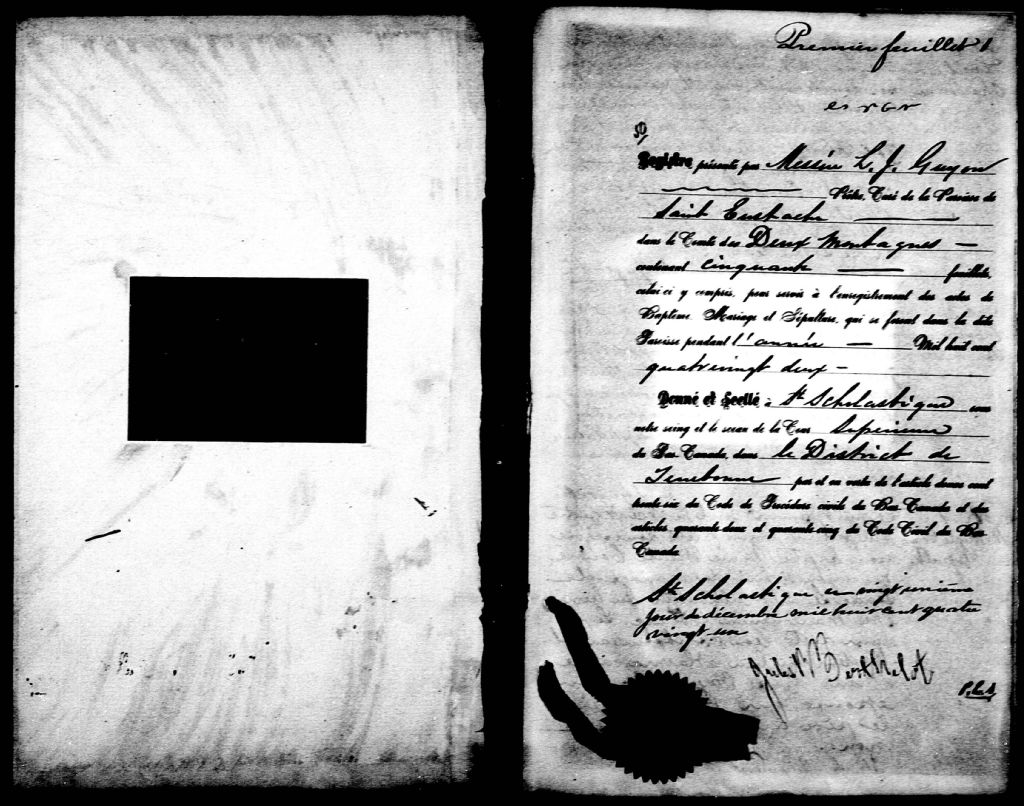 Premier feuillet 1
50/
Registre présenté par Messire L. J. Guyon
Prêtre, Curé de la Paroisse de
Saint Eustache
dans le Comté des Deux Montagnes —
contenant cinquante — feuillets,
celui-ci y compris, pour servir à l'enregistrement des actes de
Baptême, Mariage et Sépulture, qui se feront dans la dite
Paroisse pendant l'année — Mil huit cent
quatrevingt deux —
Donné et Scellé à St Scholastique sous
notre seing et le sceau de la Cour Supérieure
du Bas-Canada, dans le District de
Terrebonne par et en vertu de l'article douze cent
trente-six du Code de Procédure civile du Bas-Canada et des
articles quarante-deux et quarante-cinq du Code Civil du Bas
Canada
St Scholastique ce vingt unième
jour de décembre mil huit cent quatre
vingt un